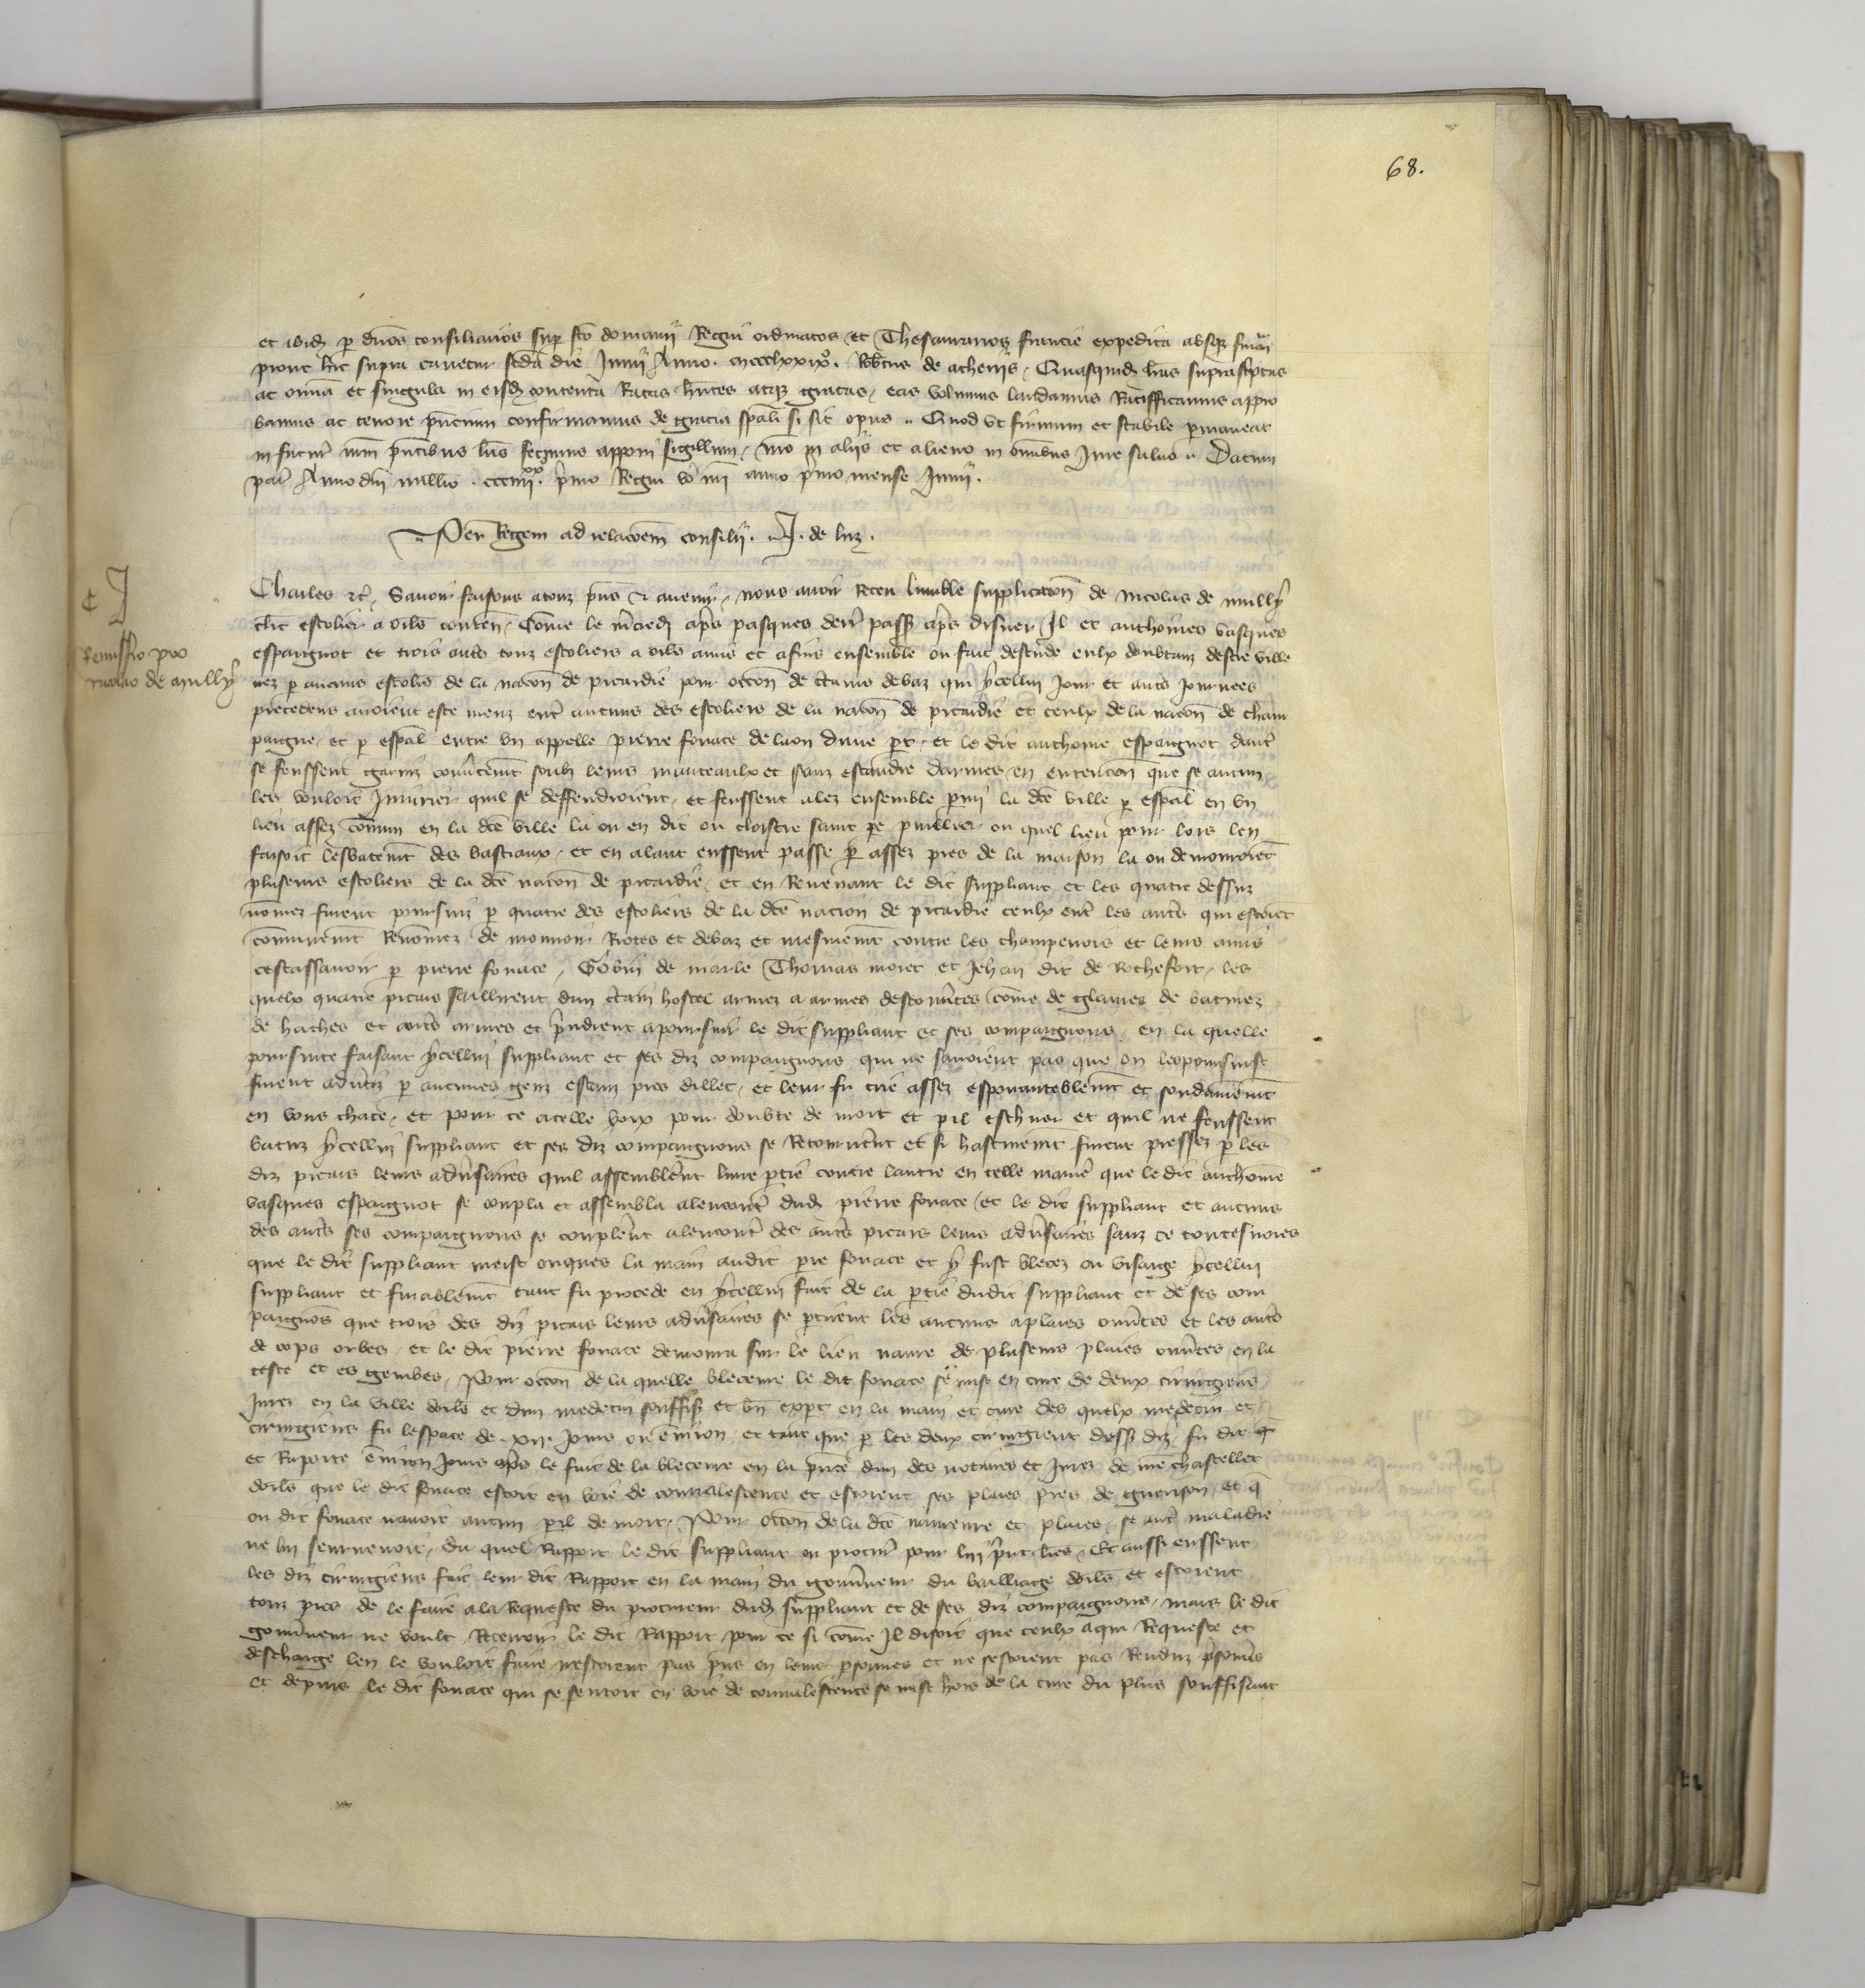 68.
et ibid p dnos consiliarios sup fco domanii Regni ordinatos et Thesaurarios francie expedita absqz finan
prout hic supra cavetur scda die Junii Anno mccclxxixo. Robtus de acheriis. Quasquid lras suprascptas
ac omia et singula in eisd contenta Ratas hntes atqz gratas eas volumus laudamus Ratifficamus appro
bamus ac tenore pncium confirmamus de gracia spali si sit opus. Quod ut firmum et stabile pmaneat
in futur nrm pntibus lris fecimus apponi sigillum. nro in aliis et alieno in omibus Jure salvo. Datum
par Anno dni millio ccciiiixx. pmo Regni vo nri anno pmo mense Junii.
Per Regem ad relacoem consilii. J. de luz.
Remissio pro
nicolao de milly
Charles etc. Savoir faisons a touz pns et avenir. nous avoir Receu lumble supplicacon de Nicolas de milly
clerc escolier a orls conten. Come le mcredi apres pasques derr passe apres disner Il et anthoines vasques
espaignot et trois autres touz escoliers a orls amis et afins ensemble ou fait descnde eulx doubtans destre ville
nez p aucuns escoliers de la nacon de picardie pour occon de ctains debaz qui ycellui jour et autres journees
precedens avoient este meuz entre aucuns des escoliers de la nacon de picardie et ceulx de la nacon de cham
paigne. et p espal entre un appelle pierre fouace de laon dune pt. et le dit anthoine espaignot dautre
se feussent garniz couvtement soubz leurs manteaulx et sanz esclandre darmes en entencon que se aucun
les vouloit Injurier quil se deffendroient. et feussent alez ensemble pmi la dce ville p espal en un
lieu assez comun en la dce ville la ou en dit ou cloistre saint pe puillier ou quel lieu pour lors len
faisoit lesbatemt des bastiaux. et en alant eussent passe p assez pres de la maison la ou demouroiet
plusieurs escoliers de la dce nacon de picardie. et en Revenant le dit suppliant et les quatre dessuz
nomez furent poursuiz p quatre des escoliers de la dce nacion de picardie ceulx entre les autres qui estoiet
comunemt Renomez de mouvoir Riotes et debaz et mesmemt contre les champenois et leurs amis
cestassavoir p pierre fouace, Gobin de marle Thomas moret et Jehan dit de Rochefort. les
quelx quatre picars saillirent dun ctain hostel armez a armes descouvtes come de glaives de bacinez
de haches et autres armes et prindrent a poursuir le dit suppliant et ses compaignons. en la quelle
poursuite faisant ycellui suppliant et ses diz compaignons qui ne savoient pas que on les poursuist
furent advtiz p aucunes genz estans pres dillec. et leur fu crie assez espouvantablemt et soudainemt
en vous chace. et pour ce a celle voix pour doubte de mort et pil eschuer et quil ne feussent
batuz ycellui suppliant et ses diz compaignons se Retournerent et si hastivemt furent pressez p les
diz picars leurs advsaires quil assemblerent lune ptie contre lautre en telle maniere que le dit anthoine
vasques espaignot se coupla et assembla alencontre dud pierre fouace et le dit suppliant et aucuns
des autres ses compaignons se couplerent alencontre des autres picars leurs advsaires sanz ce toutesvoies
que le dit suppliant meist onques la main audit pre fouace et y fust blecez ou visaige ycellui
suppliant et finablemt tant fu procede en ycellui fait de la ptie dudit suppliant et de ses com
paignos que trois des diz picars leurs advsaires se ptirent les aucuns a plaies ouvtes et les autres
de cops orbes. et le dit pierre fouace demoura sur le lieu navre de plusieurs plaies ouvtes en la
teste et es gembes. Pour occon de la quelle bleceure le dit fouace se mist en cure de deux cirurgiens
Jurez en la ville dorls et dun medecin souffis et bn expt en la main et cure des quelx medecin et
cirurgiens fu lespace de xv jours ou environ et tant que p les deux cirurgiens dess diz fu dit
et Raporte environ jours apres le fait de la bleceure en la pnce dun des notaires et Jurez de nre chastellet
dorls que le dit fouace estoit en voie de convalescence et estoient ses plaies pres de guerison. et q
ou dit fouace navoit aucun pil de mort. Pour occon de la dce navreure et plaies. se autre maladie
ne lui seurvenoit. du quel Rapport le dit suppliant ou procur pour lui prit lres. Et aussi eussent
les diz cirurgiens fait leur dit Rapport en la main du gouvneur du bailliage dorls et estoient
touz pres de le faire a la Requeste du procureur dud suppliant et de ses diz compaignons. mais le dit
gouvneur ne voult Recevoir le dit Rapport pour ce si come Il disoit que ceulx a qui Requeste et
descharge len le vouloit faire nestoient pas pris en leurs psonnes et ne sestoient pas Renduz prisonnrs
et depuis le dit fouace qui se sentoit en voie de convalescence se mist hors de la cure du plus souffisant